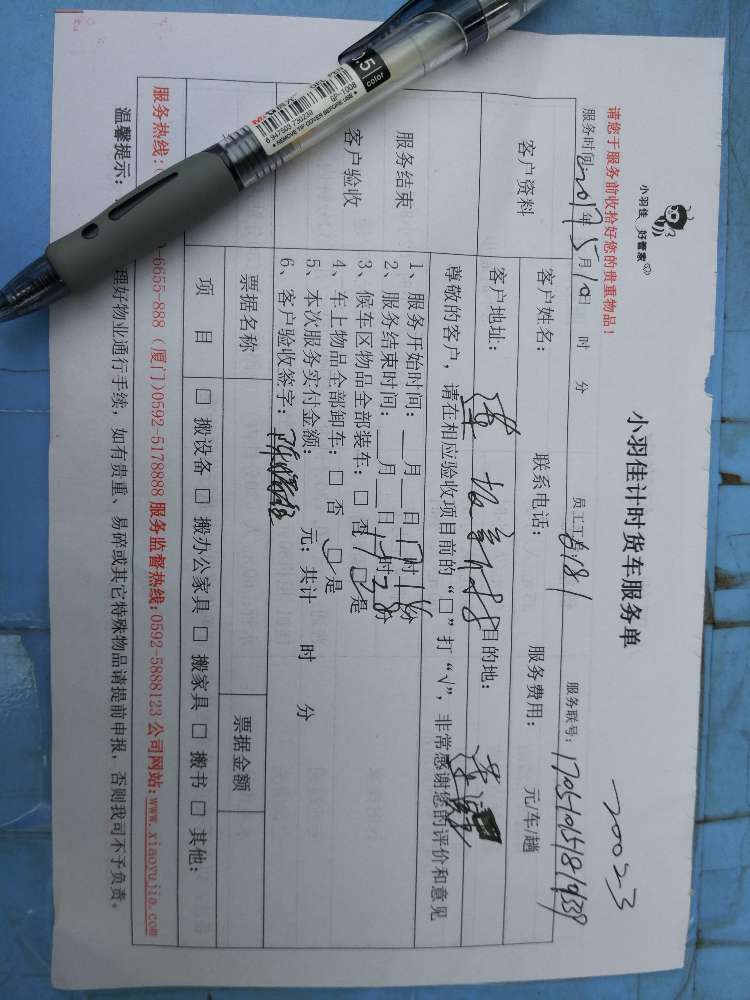 小羽佳 好管家
小羽佳计时货车服务单
20023
请您于服务前收拾好您的贵重物品!
服务时间:2017年5月10日 时 分 员工工号:6181 服务联号:
客户资料
客户姓名: 联系电话: 服务费用: 元/车/趟
客户地址: 目的地:
尊敬的客户,请在相应验收项目前的“□”打“√”,非常感谢您的评价和意见
服务结束
客户验收
1、服务开始时间: 月 日 时 分
2、服务结束时间: 月 日 时 分
3、候车区物品全部装车:□ 否 □ 是
4、车上物品全部卸车:□ 否 □ 是
5、本次服务实付金额: 元;共计 时 分
6、客户验收签字:
票据名称 票据金额
项 目 □ 搬设备 □ 搬办公家具 □ 搬家具 □ 搬书 □ 其他:
服务热线: -6655-888 (厦门)0592-5178888 服务监督热线:0592-5888123 公司网站:www.xiaoyujia.com
温馨提示: 理好物业通行手续,如有贵重、易碎或其它特殊物品请提前申报,否则我司不予负责。
0.5
color
GP-1008
REMOVE TIP COVER BEFORE USE